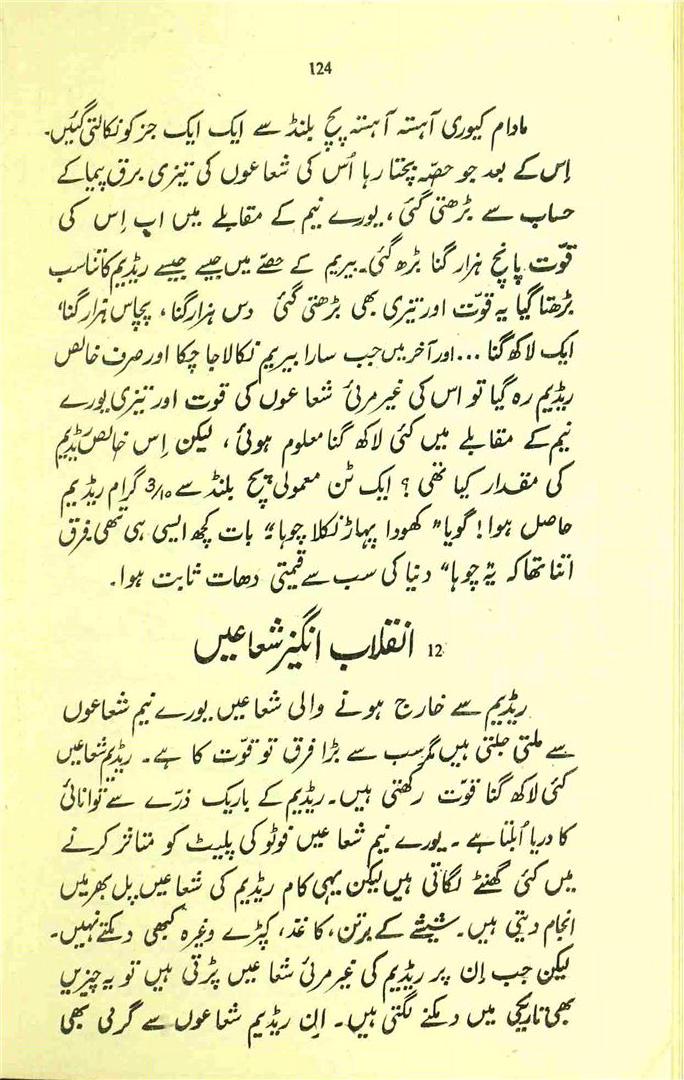 124
مادام کیوری آہستہ آہستہ پچ بلنڈ سے ایک ایک جز کو نکالتی گئیں۔
اِس کے بعد جو حصّہ بچتا رہا اُس کی شعاعوں کی تیزی برق پیما کے
حساب سے بڑھتی گئی، یورے نیم کے مقابلے میں اب اِس کی
قوّت پانچ ہزار گنا بڑھ گئی۔ بیریم کے حصّے میں جیسے جیسے ریڈیم کا تناسب
بڑھتا گیا یہ قوّت اور تیزی بھی بڑھتی گئی دس ہزار گنا، پچاس ہزار گنا،
ایک لاکھ گنا ... اور آخر میں جب سارا بیریم نکالا جا چکا اور صرف خالص
ریڈیم رہ گیا تو اس کی غیر مرئی شعاعوں کی قوت اور تیزی یورے
نیم کے مقابلے میں کئی لاکھ گنا معلوم ہوئی، لیکن اِس خالص ریڈیم
کی مقدار کیا تھی؟ ایک ٹن معمولی پچ بلنڈ سے 3/10 گرام ریڈیم
حاصل ہوا! گویا "کھودا پہاڑ نکلا چوہا" بات کچھ ایسی ہی تھی۔ فرق
اتنا تھا کہ یہ "چوہا" دنیا کی سب سے قیمتی دھات ثابت ہوا۔
12 انقلاب انگیز شعاعیں
ریڈیم سے خارج ہونے والی شعاعیں یورے نیم شعاعوں
سے ملتی جلتی ہیں مگر سب سے بڑا فرق تو قوّت کا ہے۔ ریڈیم شعاعیں
کئی لاکھ گنا قوّت رکھتی ہیں۔ ریڈیم کے باریک ذرّے سے توانائی
کا دریا اُبلتا ہے۔ یورے نیم شعاعیں فوٹو کی پلیٹ کو متاثر کرنے
میں کئی گھنٹے لگاتی ہیں لیکن یہی کام ریڈیم کی شعاعیں پل بھر میں
انجام دیتی ہیں۔ شیشے کے برتن، کاغذ، کپڑے وغیرہ کبھی دمکتے نہیں۔
لیکن جب اِن پر ریڈیم کی غیر مرئی شعاعیں پڑتی ہیں تو یہ چیزیں
بھی تاریکی میں دمکنے لگتی ہیں۔ اِن ریڈیم شعاعوں سے گرمی بھی